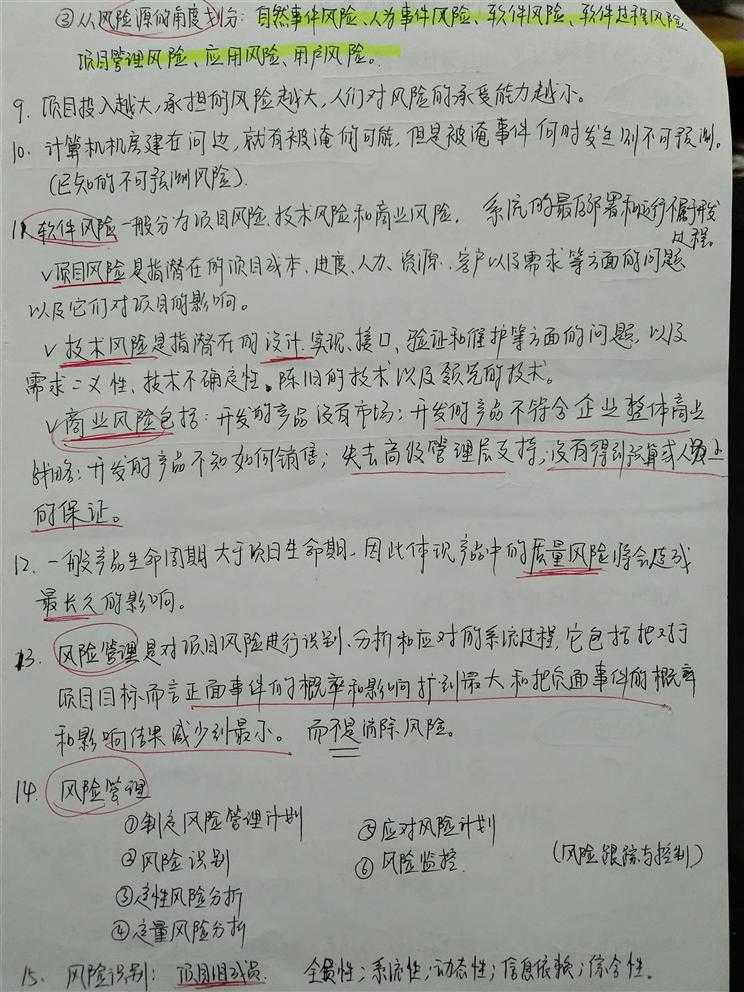 ③从风险源的角度划分：自然事件风险、人为事件风险、软件风险、软件过程风险
项目管理风险、应用风险、用户风险。
9. 项目投入越大，承担的风险越大，人们对风险的承受能力越小。
10. 计算机机房建在河边，就有被淹的可能，但是被淹事件何时发生则不可预测。
（已知的不可预测风险）.
11. 软件风险一般分为项目风险、技术风险和商业风险. 系统的最后部署和运行不属于开发
过程。
√项目风险是指潜在的项目成本、进度、人力、资源、客户以及需求等方面的问题
以及它们对项目的影响。
√技术风险是指潜在的设计、实现、接口、验证和维护等方面的问题，以及
需求二义性、技术不确定性、陈旧的技术以及领先的技术。
√商业风险包括：开发的产品没有市场；开发的产品不符合企业整体商业
战略；开发的产品不知如何销售；失去高级管理层支持，没有得到预算或人员上
的保证。
12. 一般产品生命周期大于项目生命期，因此体现产品中的质量风险将会造成
最长久的影响。
13. 风险管理是对项目风险进行识别、分析和应对的系统过程，它包括把对于
项目目标而言正面事件的概率和影响扩到最大和把负面事件的概率
和影响结果减少到最小。而不是消除风险。
14. 风险管理
①制定风险管理计划 ⑤应对风险计划
②风险识别 ⑥风险监控. （风险跟踪与控制）
③定性风险分析
④定量风险分析
15. 风险识别：项目组成员. 全员性；系统性；动态性；信息依赖；综合性。